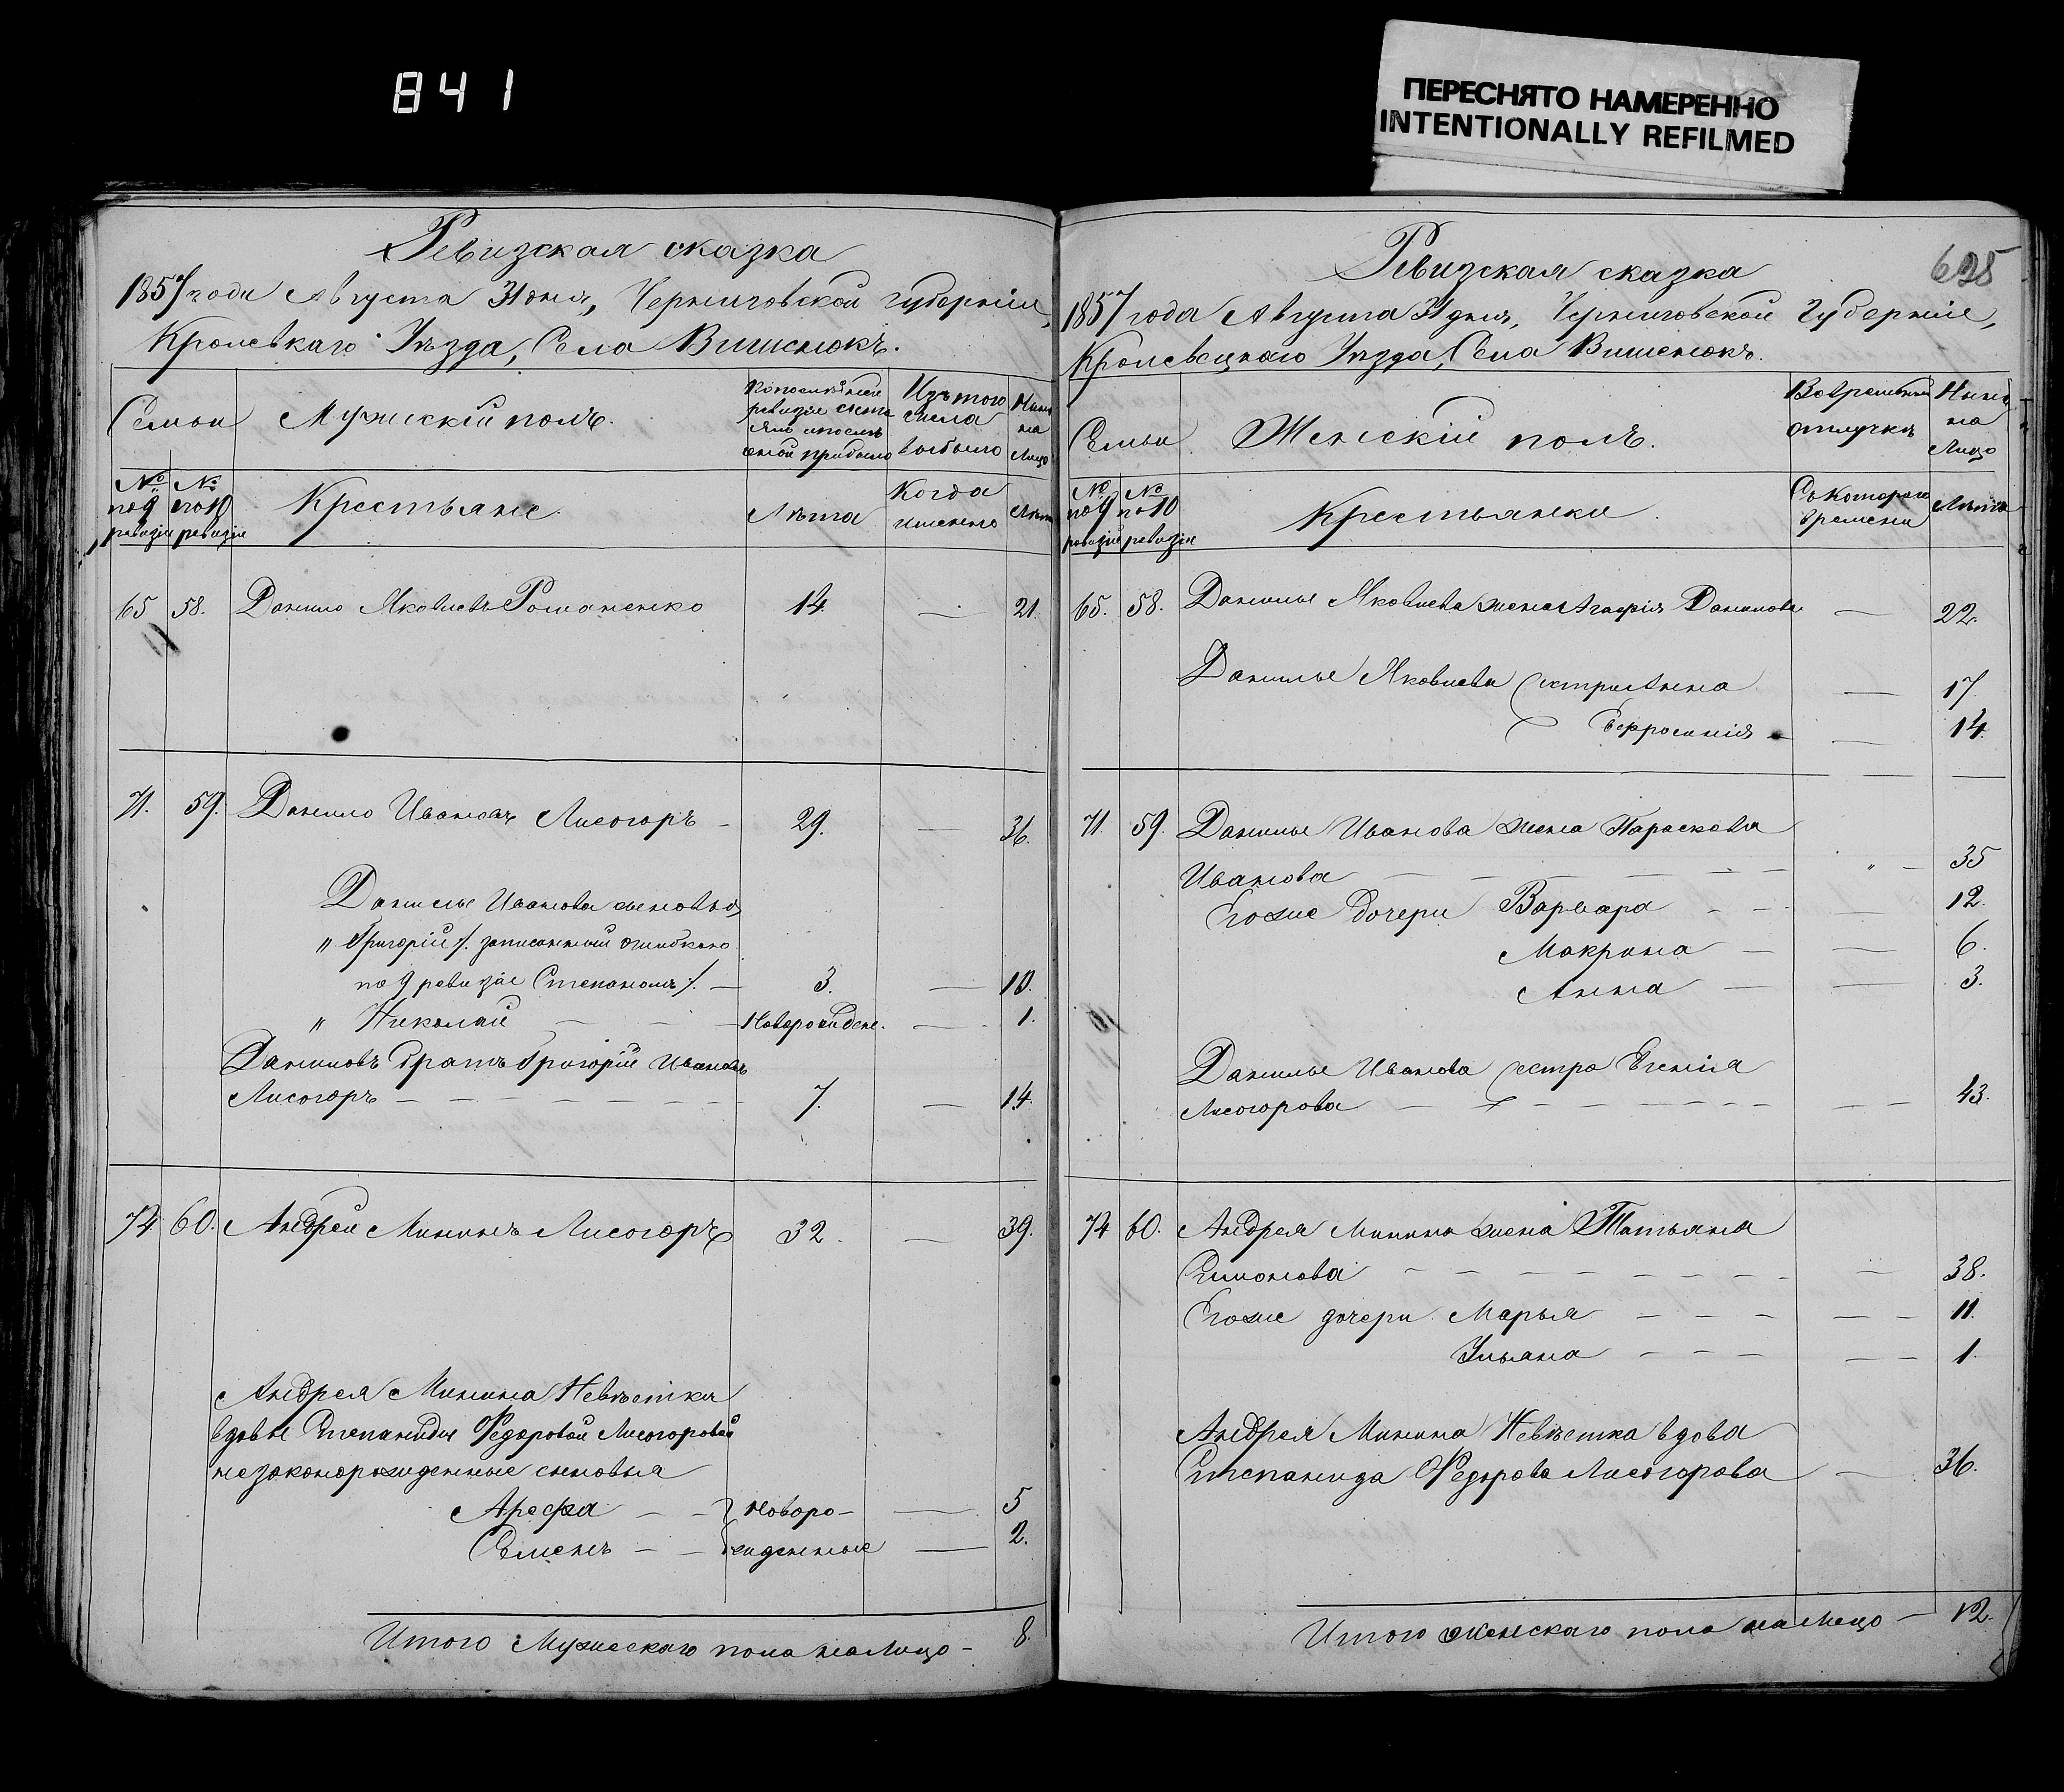 841
ПЕРЕСНЯТО НАМЕРЕННО
INTENTIONALLY REFILMED
Ревизская сказка
1857 года Августа 31 дня, Черниговской губернiи,
Кролевкаго Уѣзда, Села Вишенюкъ.
Семьи Мужескiй полъ. Изъ того числа выбыло Нынѣ на лицо
№ по 9 ревизiи № по 10 ревизiи Крестьяне. Лѣта Когда именно Лѣта
65 58. Данило Яковлевъ Романенко 14 — 21.
71. 59. Данило Ивановъ Лисогоръ — 29. — 36.
Данилы Иванова сыновья
" Григорiй /. записанный ошибкою
по 9 ревизiи Степаномъ /. — 3. — 10.
" Николай — — — Новорожден. — 1.
Даниловъ братъ Григорiй Ивановъ
Лисогоръ — — — — — — 7. — 14.
74 60. Андрей Мининъ Лисогоръ 32. — 39.
Андрея Минина Невѣстки
вдовы Степаниды Федоровой Лисогоровой
незаконорожденные сыновья
Арефа — — Новоро- — 5
Семенъ — — жденные — 2.
Итого Мужескаго пола на Лицо — 8.
625
Ревизская сказка
1857 года Августа 31 дня, Черниговской Губернiи,
Кролевецкаго Уѣзда, Села Вишенюкъ.
Семьи Женскiй полъ. Во временной отлучкѣ Нынѣ на Лицо
№ по 9 ревизiи № по 10 ревизiи Крестьянки. Съ Котораго времени Лѣта
65. 58. Данилы Яковлева жена Агафiя Данилова — 22.
Данилы Яковлева сестры Анна — 17.
Евфросинiя — — 14.
71. 59. Данилы Иванова жена Параскевiя
Иванова — — — — — — " — 35
Егоже дочери Варвара — — — 12.
Макрина — — 6.
Анна — — 3.
Данилы Иванова сестра Евгенiя
Лисогорова — — — — — — — — 43.
74 60. Андрея Минина жена Татьяна
Симонова — — — — — — — — 38.
Егоже дочери Марья — — — — — 11.
Ульяна — — — — — 1.
Андрея Минина Невѣстка вдова
Степанида Федорова Лисогорова — 36.
Итого женскаго пола на Лицо — 12.